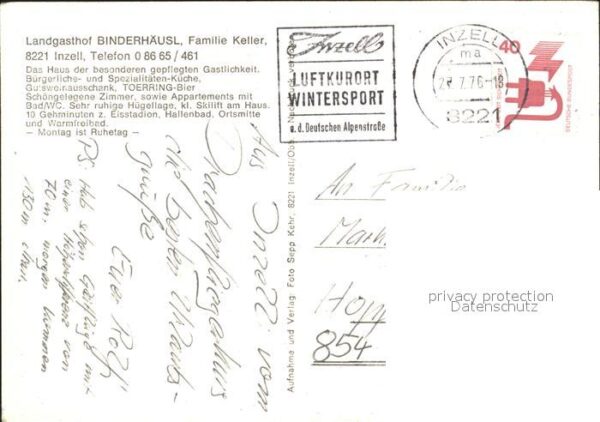 Landgasthof BINDERHÄUSL, Familie Keller,
8221 Inzell, Telefon 0 86 65 / 461
Das Haus der besonderen gepflegten Gastlichkeit.
Bürgerliche- und Spezialitäten-Küche,
Gutsweinausschank, TOERRING-Bier
Schöngelegene Zimmer, sowie Appartements mit
Bad/WC. Sehr ruhige Hügellage, kl. Skilift am Haus.
10 Gehminuten z. Eisstadion, Hallenbad, Ortsmitte
und Warmfreibad.
— Montag ist Ruhetag —
Aus Inzell vom
Drachenfliegerkurs
die besten Urlaubs-
grüße
Euer Rolf
PS: Hab schon Gleitflüge mit
einer Höhendifferenz von
70 m. morgen kommen
130 m dran.
Aufnahme und Verlag: Foto Sepp Kehr, 8221 Inzell/Obb.
Inzell
LUFTKURORT
WINTERSPORT
a.d. Deutschen Alpenstraße
INZELL
ma
7.76-18
8221
40
DEUTSCHE BUNDESPOST
An Familie
Mark
Hof
854
privacy protection
www.ansichtskartenversand.com